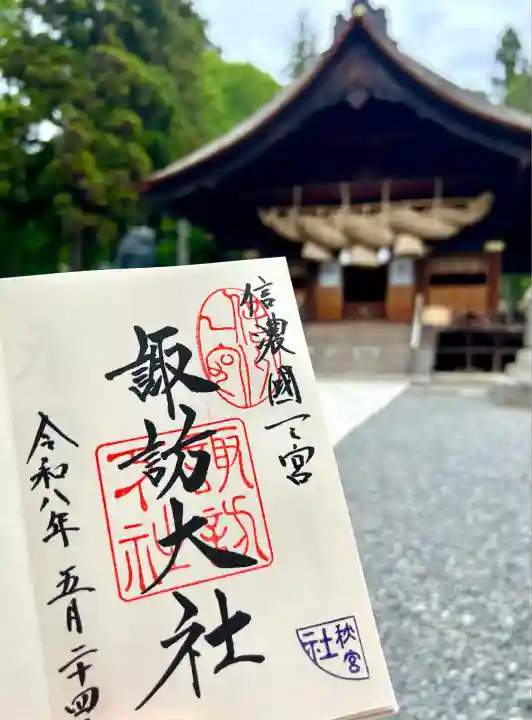 信濃國一之宮
諏訪大社
諏訪大社
令和八年五月二十四
秋宮
社